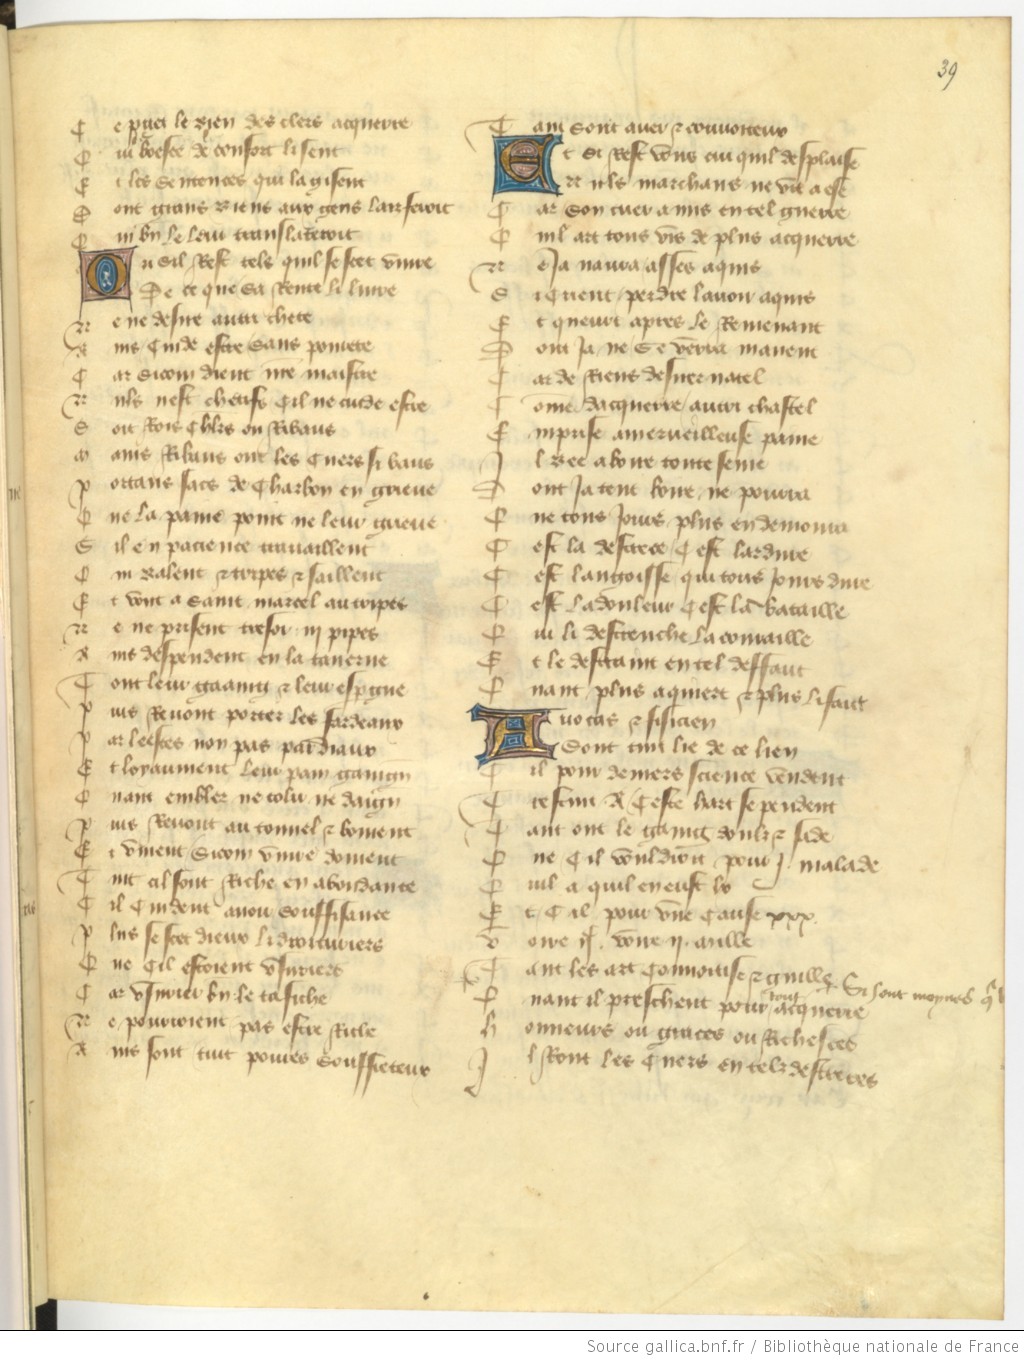 39
C e puet le bien des clers acquerre
Q ui boesce de confort lisent
E t les sentences qui la gisent
D ont grans biens aux gens lais feroit
Q ui bn le leur translateroit
Ou sil rest tels quil se scet vivre
De ce que sa rente li livre
N e ne desire autri chete
A ins cuide estre sans povrete
C ar sicom dient nre maistre
N uls nest chetifs sil ne cuide estre
S oit rois chlrs ou ribaus
M ains ribaus ont les cuers si baus
P ortans sacs de charbon en grieve
Q ue la paine point ne leur grieve
S il en pacience travaillent
Q ui balent & tripes & saillent
E t vont a saint marcel au tripes
N e ne prisent tresor iii pipes
A ins despendent en la taverne
T out leur gaaing & leur espgne
P uis revont porter les fardeaux
P ar leesces non pas par diaux
E t loyaument leur pain gaaign
Q uant embler ne tolu ne daign
P uis revont au tonnel & boivent
E t vivent sicom vivre doivent
T uit cil sont riche en abondance
C il cuident avoir souffisance
P lus se scet dieux li droituriers
Q ue cil estoient usuriers
C ar usurier bn le tafiche
N e pourroient pas estre riche
A ins sont tuit povres souffreteux
T ant sont aver & convoiteux
Et si rest voirs cui quil desplaise
N uls marchans ne vit a ese
C ar son cuer a mis en tel guerre
Q uil art tous vis de plus acquerre
N e ja naura asses aquis
S i crient perdre lavoir aquis
E t queurt apres le remenant
D ont ja ne se verra manent
C ar de riens desirer na tel
C ome dacquerre autri chastel
E mprise a merveilleuse paine
I l bee a boire toute seine
D ont ja tent boire ne pourra
Q ue tous jours plus en demorra
C est la destrece cest lardure
C est langoisse qui tous jours dure
C est la douleur cest la bataille
Q ui li destrenche la coraille
E t le destraint en tel deffaut
Q uant plus aquiert & plus li faut
Avocas & fisicien
Sont tuit lie de ce lien
C il pour deniers science vendent
T restuit a ceste hart se pendent
T ant ont le gaaing doulz & sade
Q ue cil vouldroit pour j. malade
Q uil a quil en eust lx
E t cil pour une cause xxx.
V oire ijc voire ij. mille
T ant les art convoitise & guille
Si sont moynes
Q uant il preschent pour tout acquerre
H onneurs ou graces ou richesces
I l ront les cuers en telz destreces
Source gallica.bnf.fr / Bibliothèque nationale de France